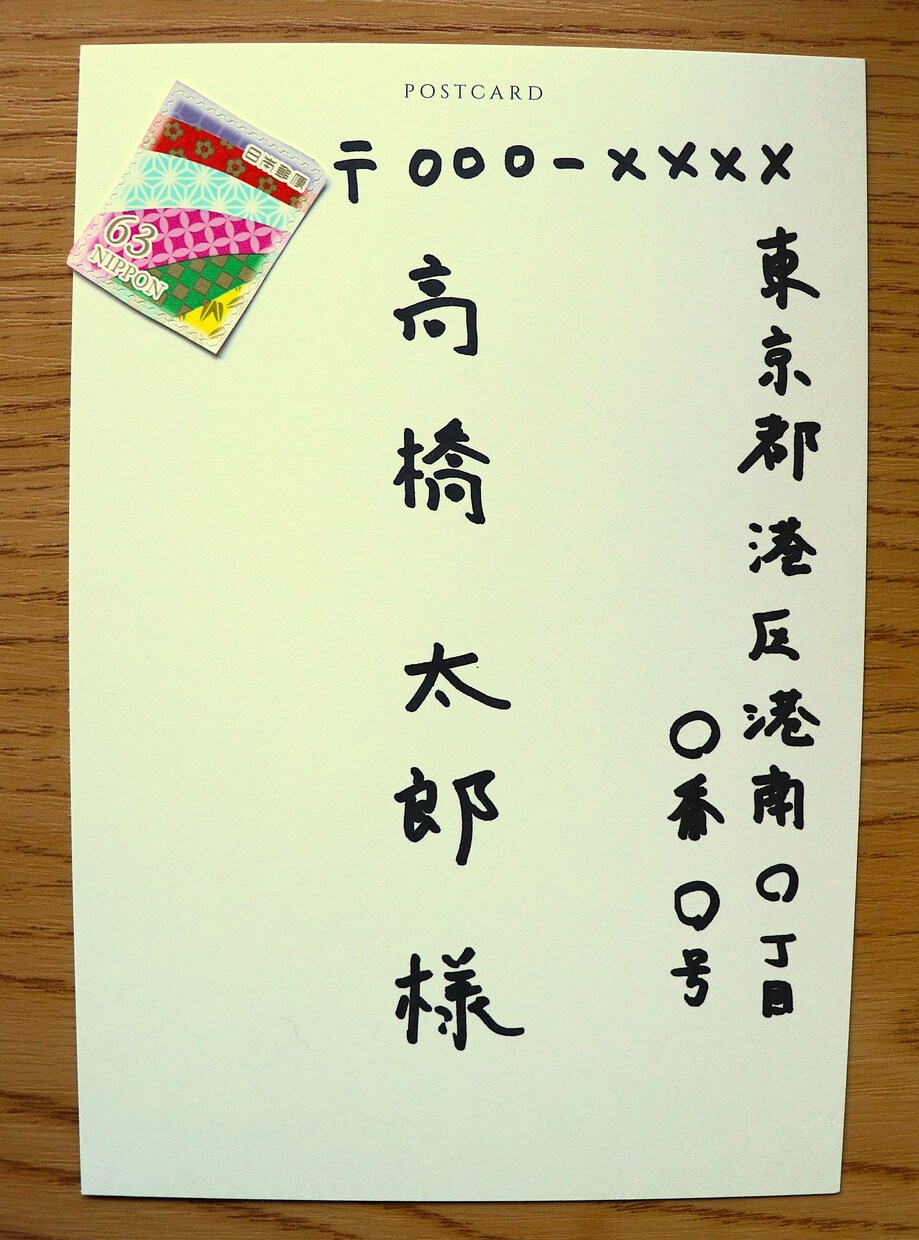 POSTCARD
日本郵便
63
NIPPON
〒000-××××
東京都港区港南〇丁目
〇番〇号
高橋 太郎 様